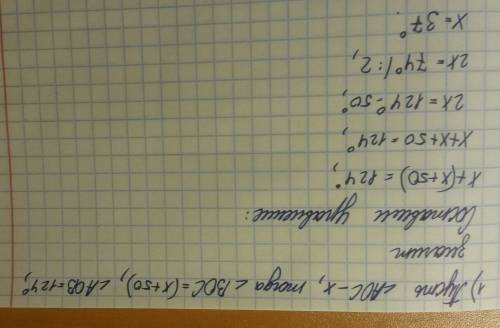 1) Пусть ∠AOC - x, тогда ∠BOC = (x+50), ∠AOB = 124°,
значит
Составим уравнение:
x+(x+50) = 124°,
x+x+50 = 124°,
2x = 124° - 50°,
2x = 74° /: 2,
x = 37°.